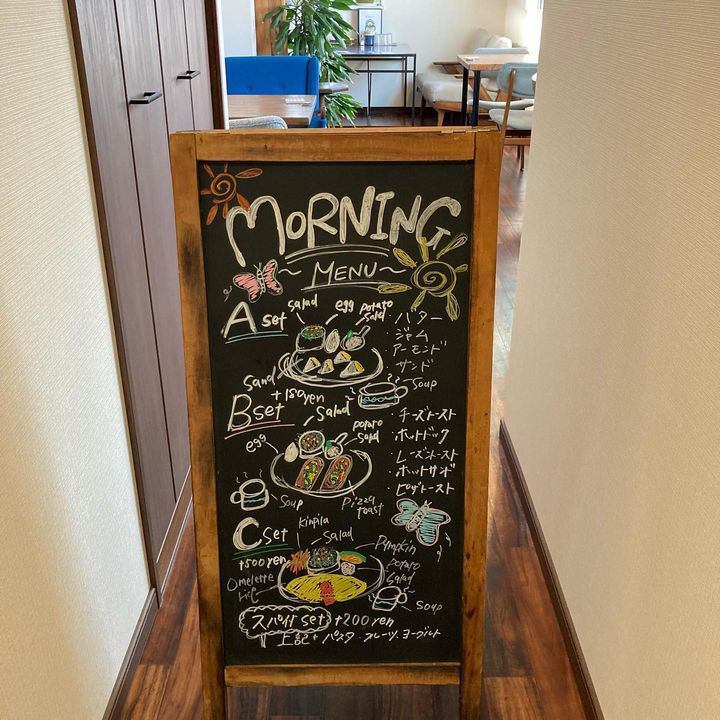 MORNING
~ MENU ~
A set
salad
egg
potato salad
バター
ジャム
アーモンド
サンド
Sand
Soup
B set
+150yen
Salad
egg
potato salad
・チーズトースト
・ホットドック
レーズントースト
・ホットサンド
・ピザトースト
Soup
Pizza toast
C set
+500yen
Kinpila
Salad
Pumpkin
Potato Salad
Omelette
Soup
スパイ付 set +200yen
上記+ パスタ・フルーツ・ヨーグルト